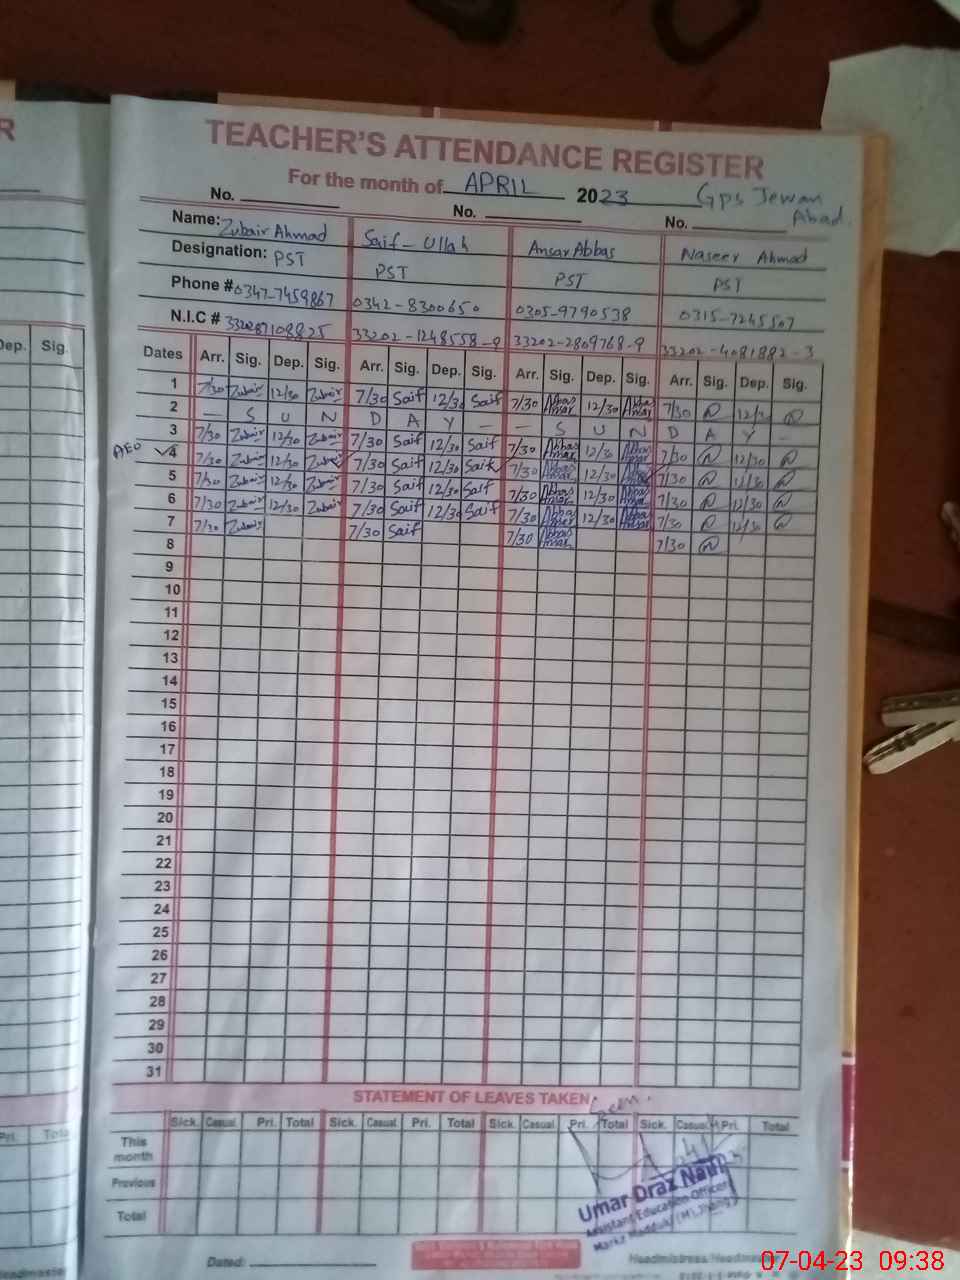 R
TEACHER'S ATTENDANCE REGISTER
For the month of APRIL 2023 Gps Jewan Abad.
No. No. No.
Name: Zubair Ahmad Saif-Ullah Ansar Abbas Naseer Ahmad
Designation: PST PST PST PST
Phone # 0347-7459867 0342-8300650 0305-9790538 0315-7245507
N.I.C # 33202-1248558-9 33202-2809768-9 33202-4081882-3
Dep. Sig.
Dates Arr. Sig. Dep. Sig. Arr. Sig. Dep. Sig. Arr. Sig. Dep. Sig. Arr. Sig. Dep. Sig.
1 7/30 Zubair 12/30 Zubair 7/30 Saif 12/30 Saif 7/30 Abbas Ansar 12/30 Abbas Ansar 7/30 12/30
2 — S U N D A Y — — S U N D A Y -
3 7/30 Zubair 12/30 Zubair 7/30 Saif 12/30 Saif 7/30 Abbas Ansar 12/30 Abbas Ansar 7/30 12/30
AEO 4 7/30 Zubair 12/30 Zubair 7/30 Saif 12/30 Saif 7/30 Abbas Ansar 12/30 Abbas Ansar 7/30 12/30
5 7/30 Zubair 12/30 Zubair 7/30 Saif 12/30 Saif 7/30 Abbas Ansar 12/30 Abbas Ansar 7/30 12/30
6 7/30 Zubair 12/30 Zubair 7/30 Saif 12/30 Saif 7/30 Abbas Ansar 12/30 Abbas Ansar 7/30 12/30
7 7/30 Zubair 7/30 Saif 7/30 Abbas Ansar 7/30
8
9
10
11
12
13
14
15
16
17
18
19
20
21
22
23
24
25
26
27
28
29
30
31
STATEMENT OF LEAVES TAKEN
Seen.
Sick. Casual Pri. Total Sick. Casual Pri. Total Sick. Casual Pri. Total Sick. Casual Pri. Total
Pri. Total
This month
Previous
Total
Umar Draz Nain
Assistant Education Officer
Dated: Headmistress/Headmaster
07-04-23 09:38